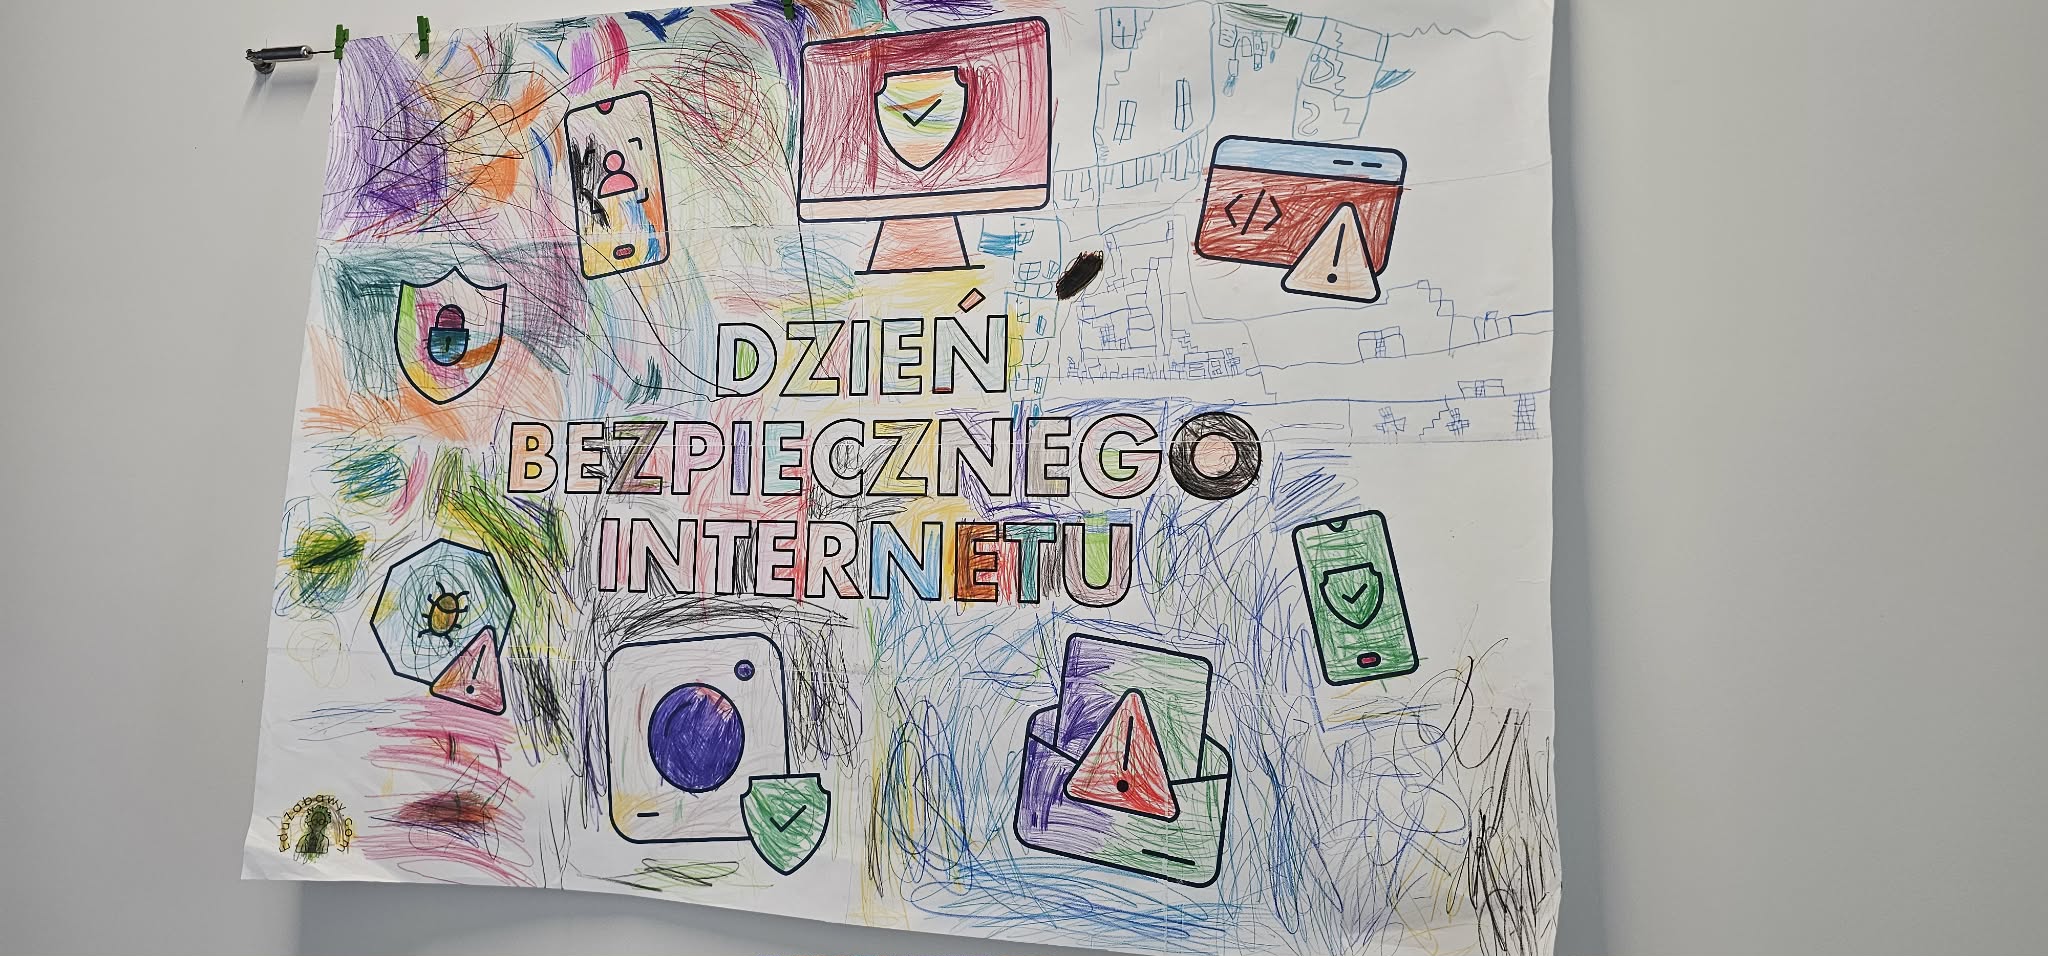 DZIEŃ
BEZPIECZNEGO
INTERNETU
eduzabawy.com